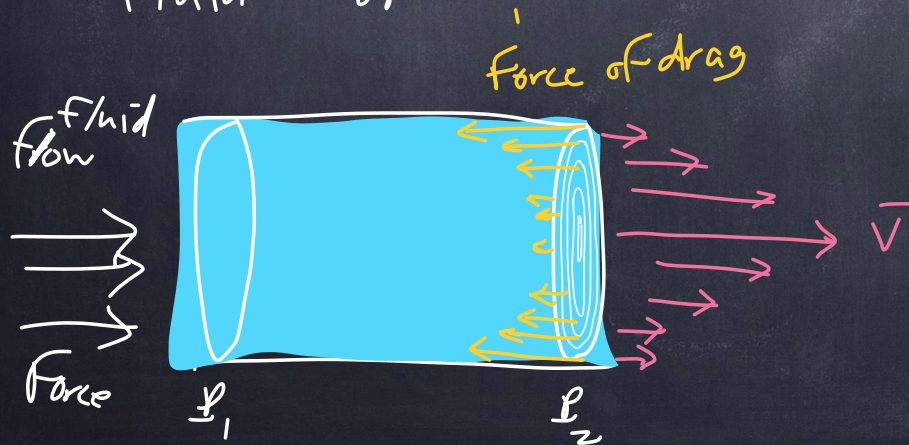 Force of drag
fluid
flow
V
Force
P1
P2